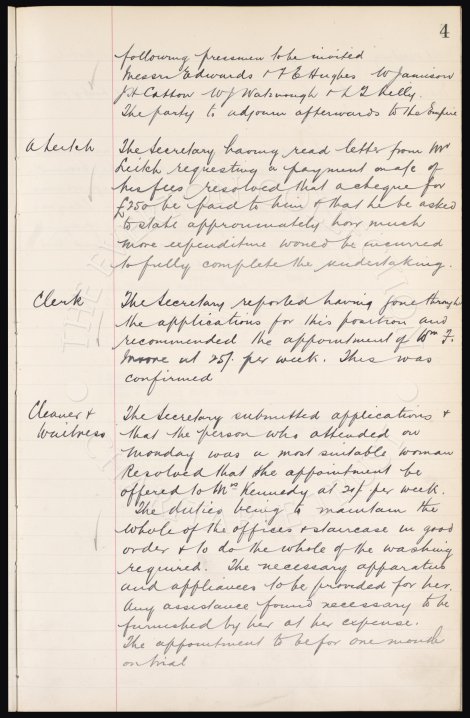 4
following pressmen to be invited
Messrs Edwards & F E Hughes W Jamieson
J H Catton W J Watmough & L T Kelly.
The party to adjourn afterwards to the Empire
A Leitch The Secretary having read letter from Mr
Leitch requesting a payment on a/c of
his fees resolved that a cheque for
£250 be paid to him & that he be asked
to state approximately how much
more expenditure would be incurred
to fully complete the undertaking.
Clerk The Secretary reported having gone through
the applications for this position and
recommended the appointment of Wm F.
at 25/. per week. This was
confirmed
Cleaner & The Secretary submitted applications &
Waitress that the person who attended on
Monday was a most suitable woman
Resolved that the appointment be
offered to Mrs Kennedy at 20/ per week.
The duties being to maintain the
whole of the offices & staircase in good
order & to do the whole of the washing
required. The necessary apparatus
and appliances to be provided for her.
Any assistance found necessary to be
furnished by her at her expense.
The appointment to be for one month
on trial